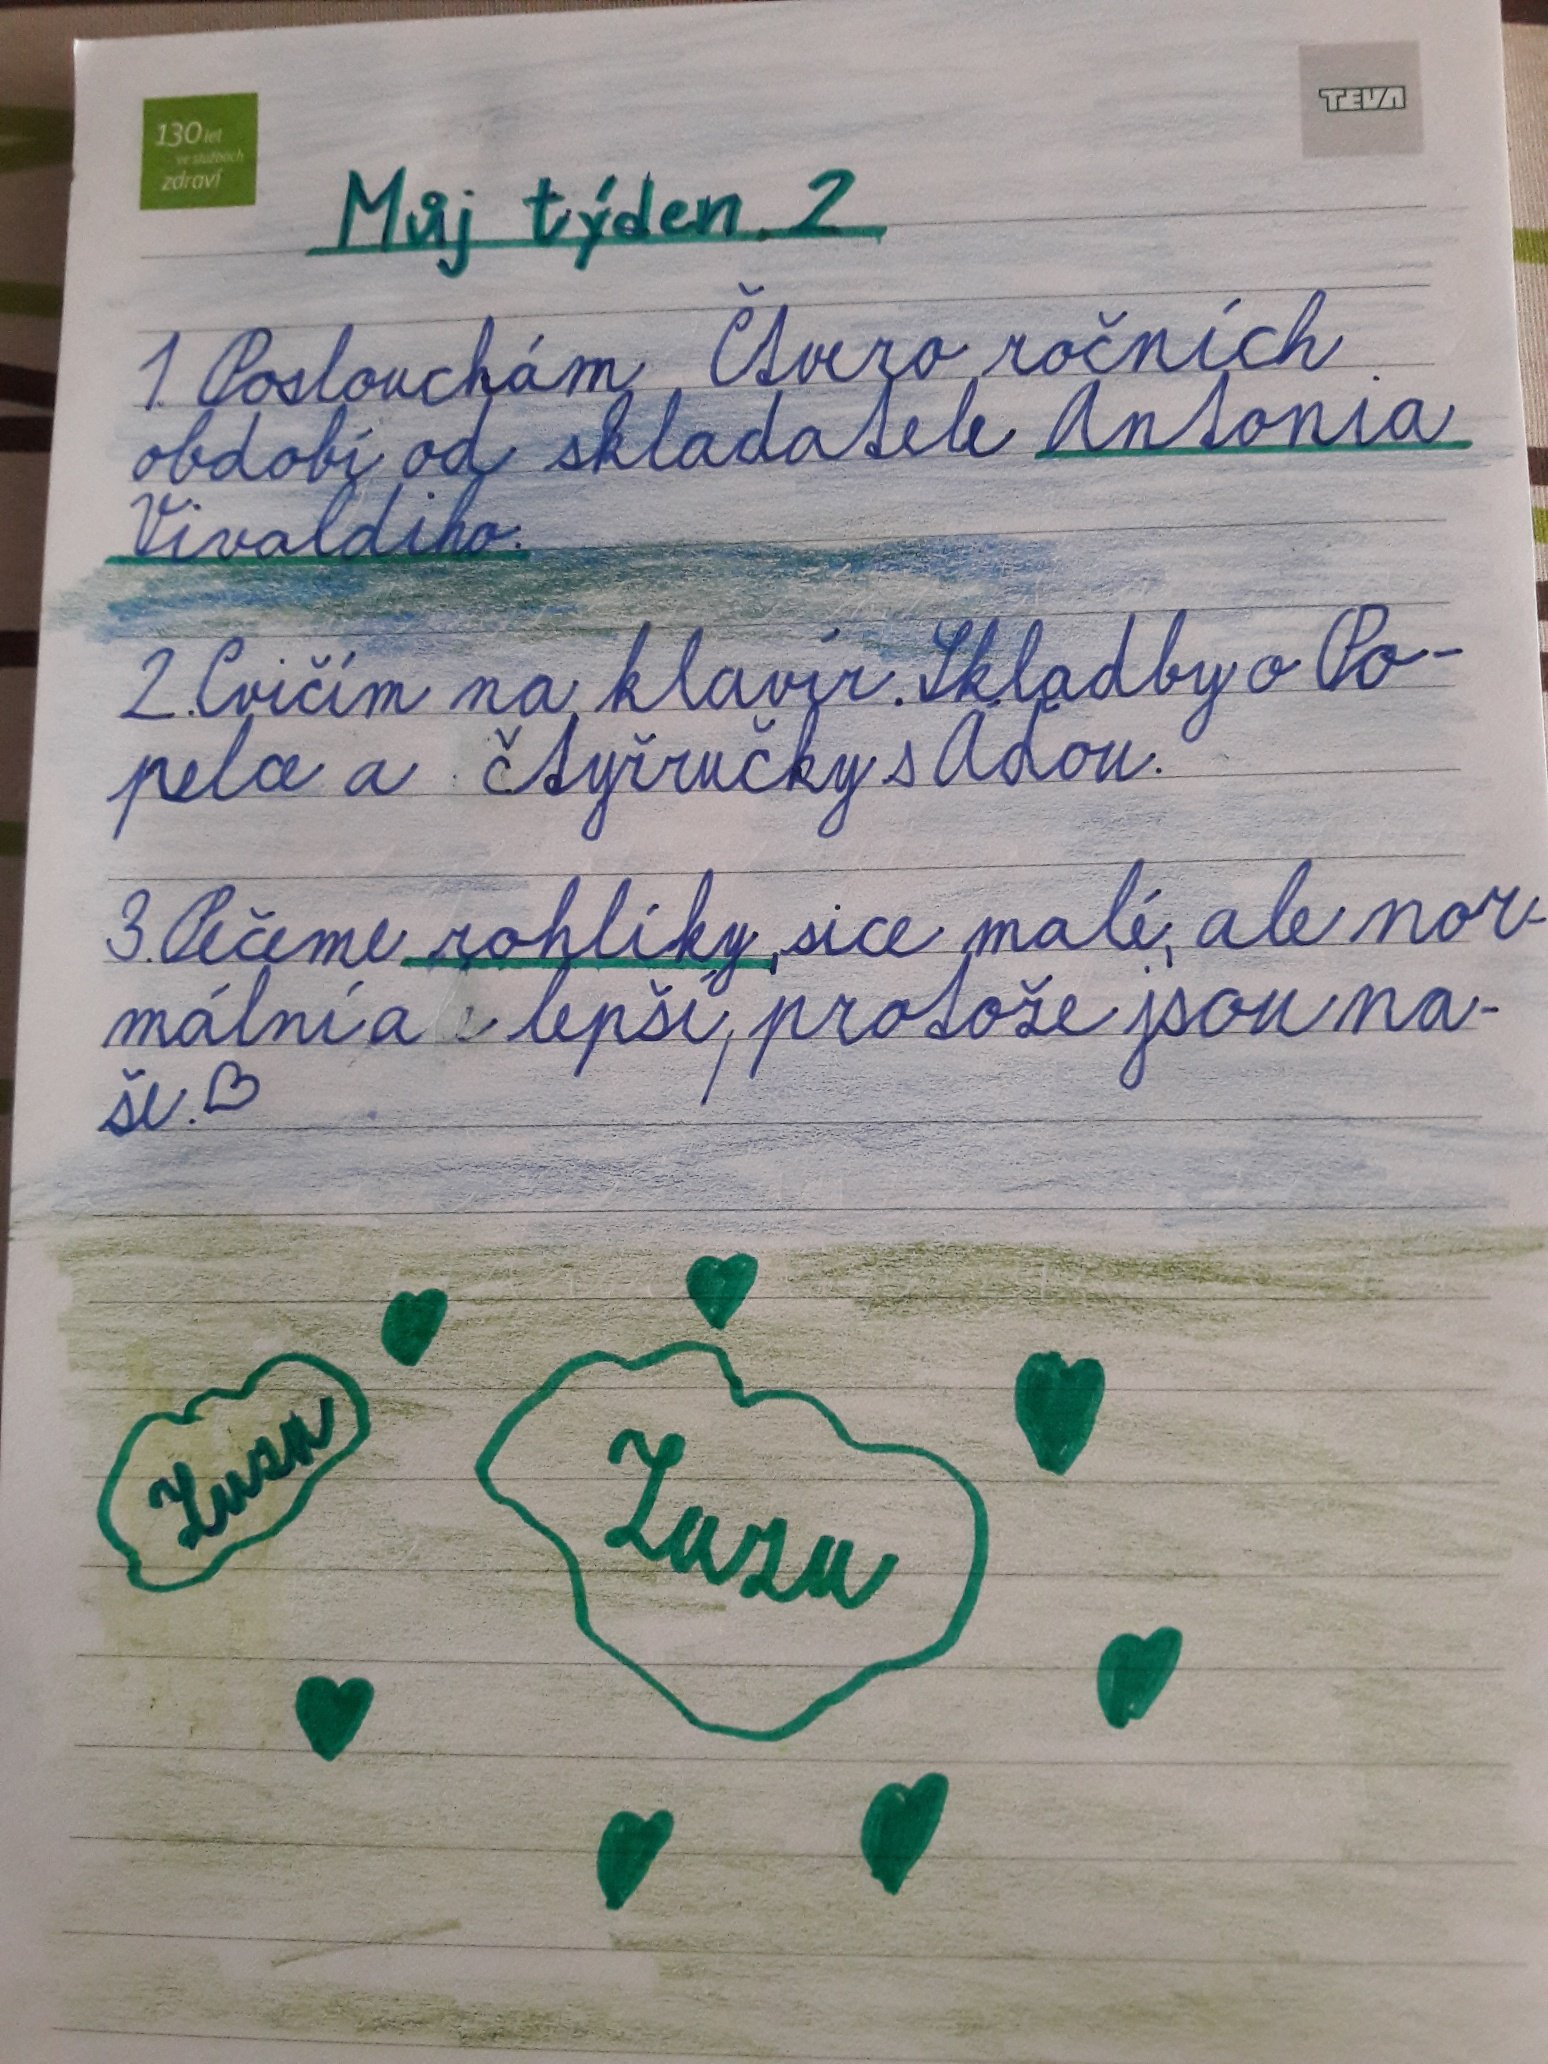 130 let
ve službách
zdraví
TEVA
Můj týden 2
1. Poslouchám Čtvero ročních
období od skladatele Antonia
Vivaldiho.
2. Cvičím na klavír. Skladby o Po-
pelce a čtyřručky s Áďou.
3. Pečeme rohlíky, sice malé, ale nor-
mální a lepší, protože jsou na-
še. ♡
Zuzu